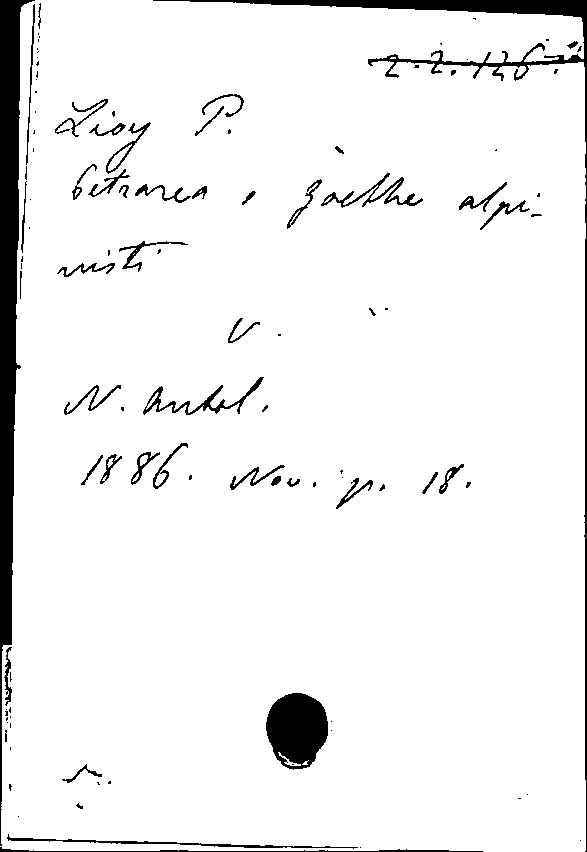 2.2.126.
Lioy P.
Petrarca e Goethe alpi-
nisti
V.
N. Antol.
1886. Nov. p. 18.